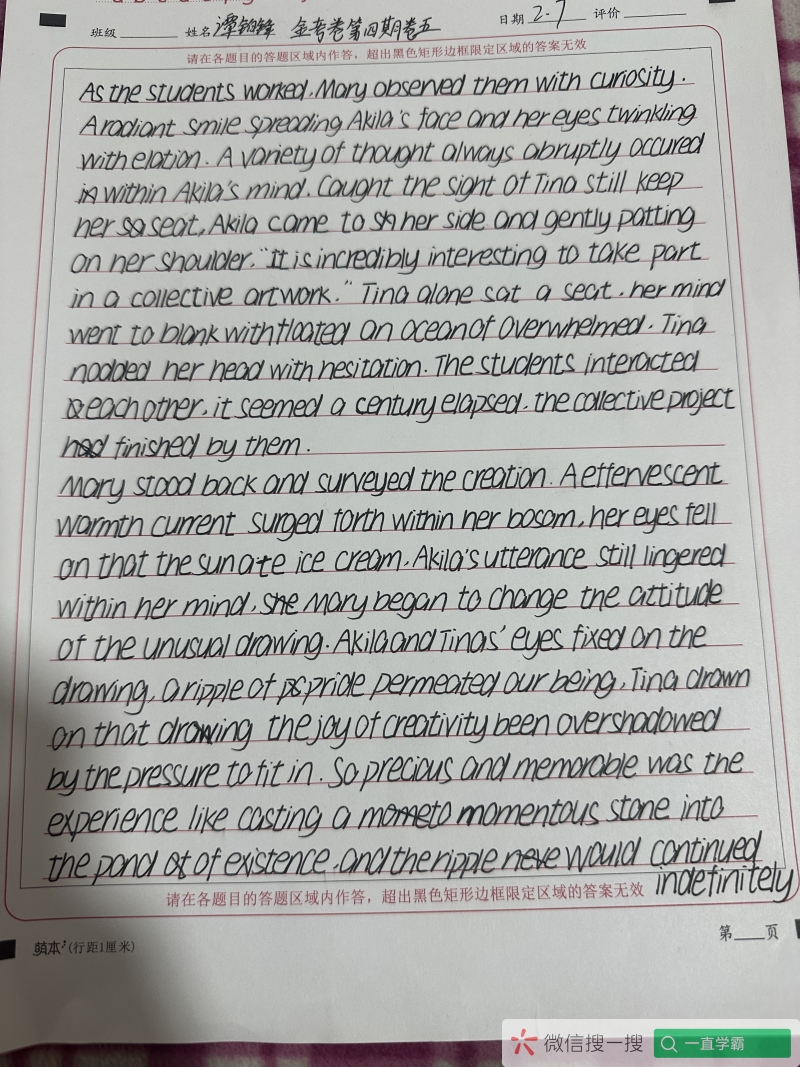 班级 姓名 谭钧锋 金考卷第四期卷五 日期 2.7 评价
请在各题目的答题区域内作答，超出黑色矩形边框限定区域的答案无效
As the students worked, Mary observed them with curiosity.
A radiant smile spreading Akila's face and her eyes twinkling
with elation. A variety of thought always abruptly occured
in within Akila's mind. Caught the sight of Tina still keep
her sa seat, Akila came to sh her side and gently patting
on her shoulder. "It is incredibly interesting to take part
in a collective artwork." Tina alone sat a seat, her mind
went to blank with floated an ocean of overwhelmed. Tina
nodded her head with hesitation. The students interacted
each other, it seemed a century elapsed, the collective project
had finished by them.
Mary stood back and surveyed the creation. A effervescent
warmth current surged forth within her bosom, her eyes fell
on that the sun ate ice cream. Akila's utterance still lingered
within her mind, she Mary began to change the attitude
of the unusual drawing. Akila and Tinas' eyes fixed on the
drawing, a ripple of ps pride permeated our being, Tina drawn
on that drawing the joy of creativity been overshadowed
by the pressure to fit in. So precious and memorable was the
experience like casting a mometo momentous stone into
the pond of existence, and the ripple neve would continued
indefinitely
请在各题目的答题区域内作答，超出黑色矩形边框限定区域的答案无效
(行距1厘米)
第 页
微信搜一搜 一直学霸